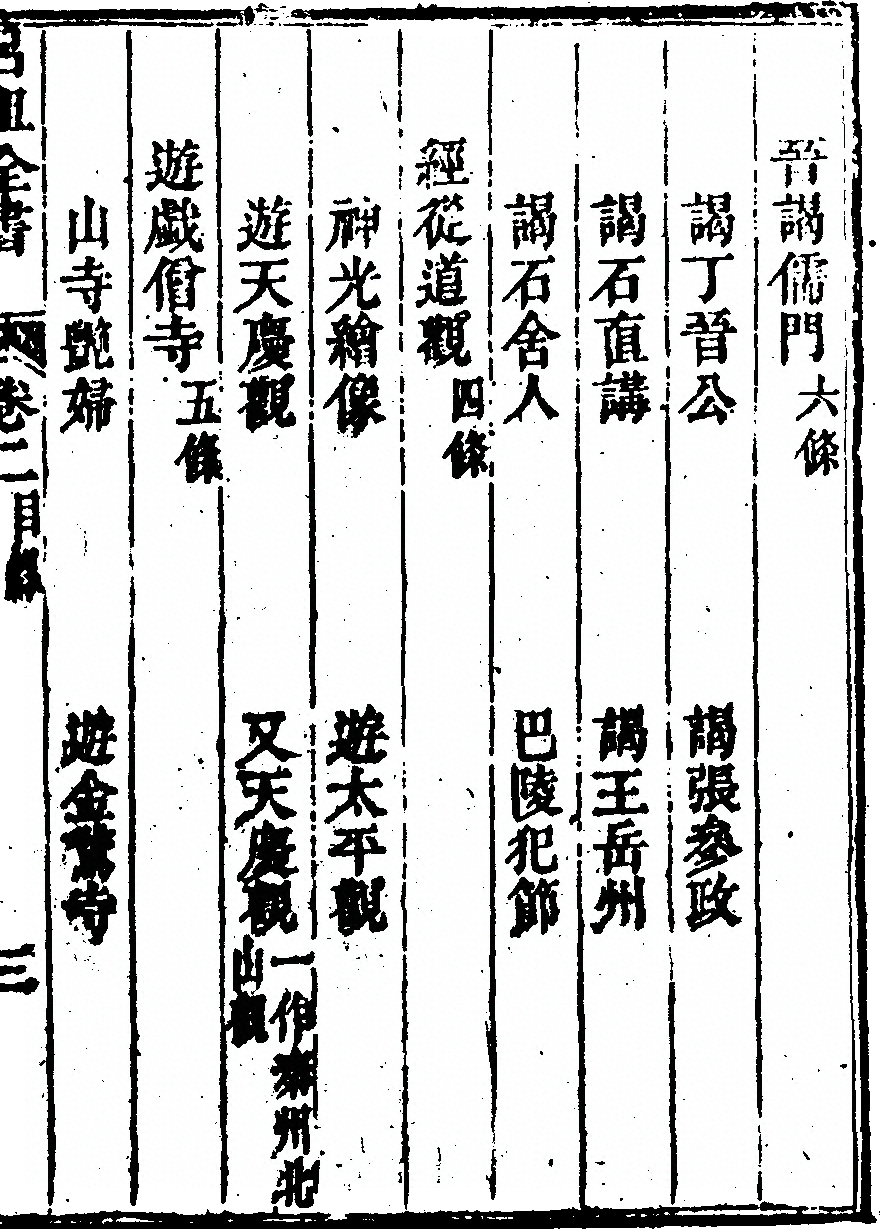 晉謁儒門 六條
謁丁晉公 謁張參政
謁石直講 謁王岳州
謁石舍人 巴陵犯節
經從道觀 四條
神光繪像 遊太平觀
遊天慶觀 又天慶觀 一作秦州北山觀
遊戲僧寺 五條
山寺艷婦 遊金鵞寺
呂祖全書 卷二目錄 三